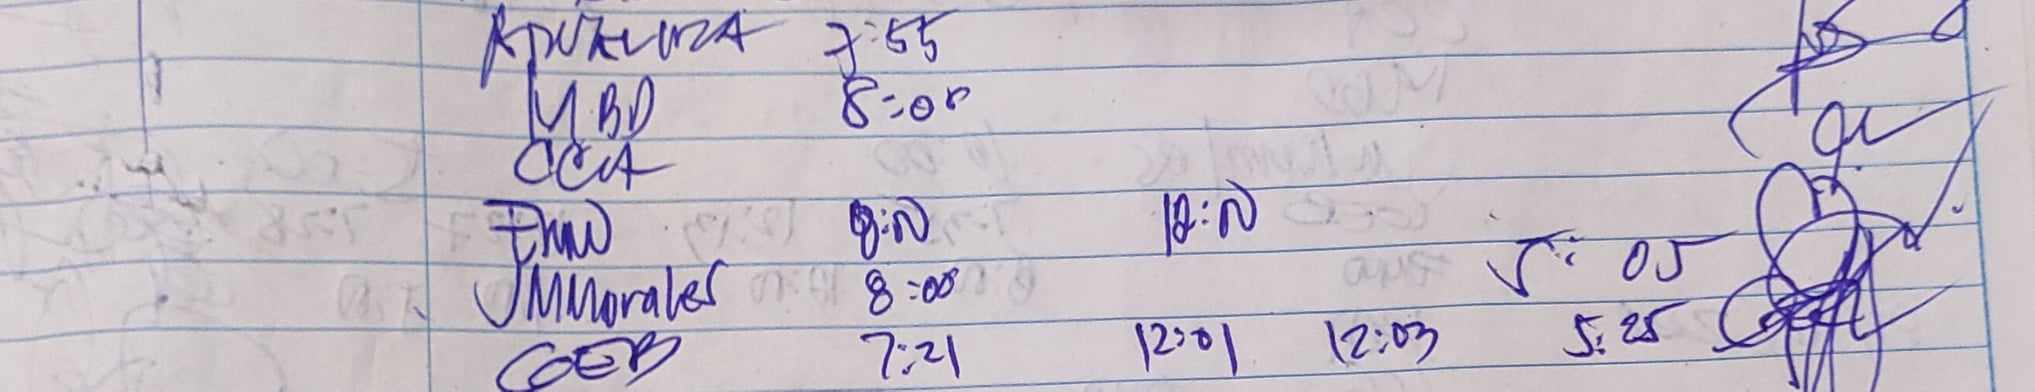 7:55
MBD 8:00
CCA
8:00 12:00
JMMorales 8:00 5:05
GEB 7:21 12:01 12:03 5:25